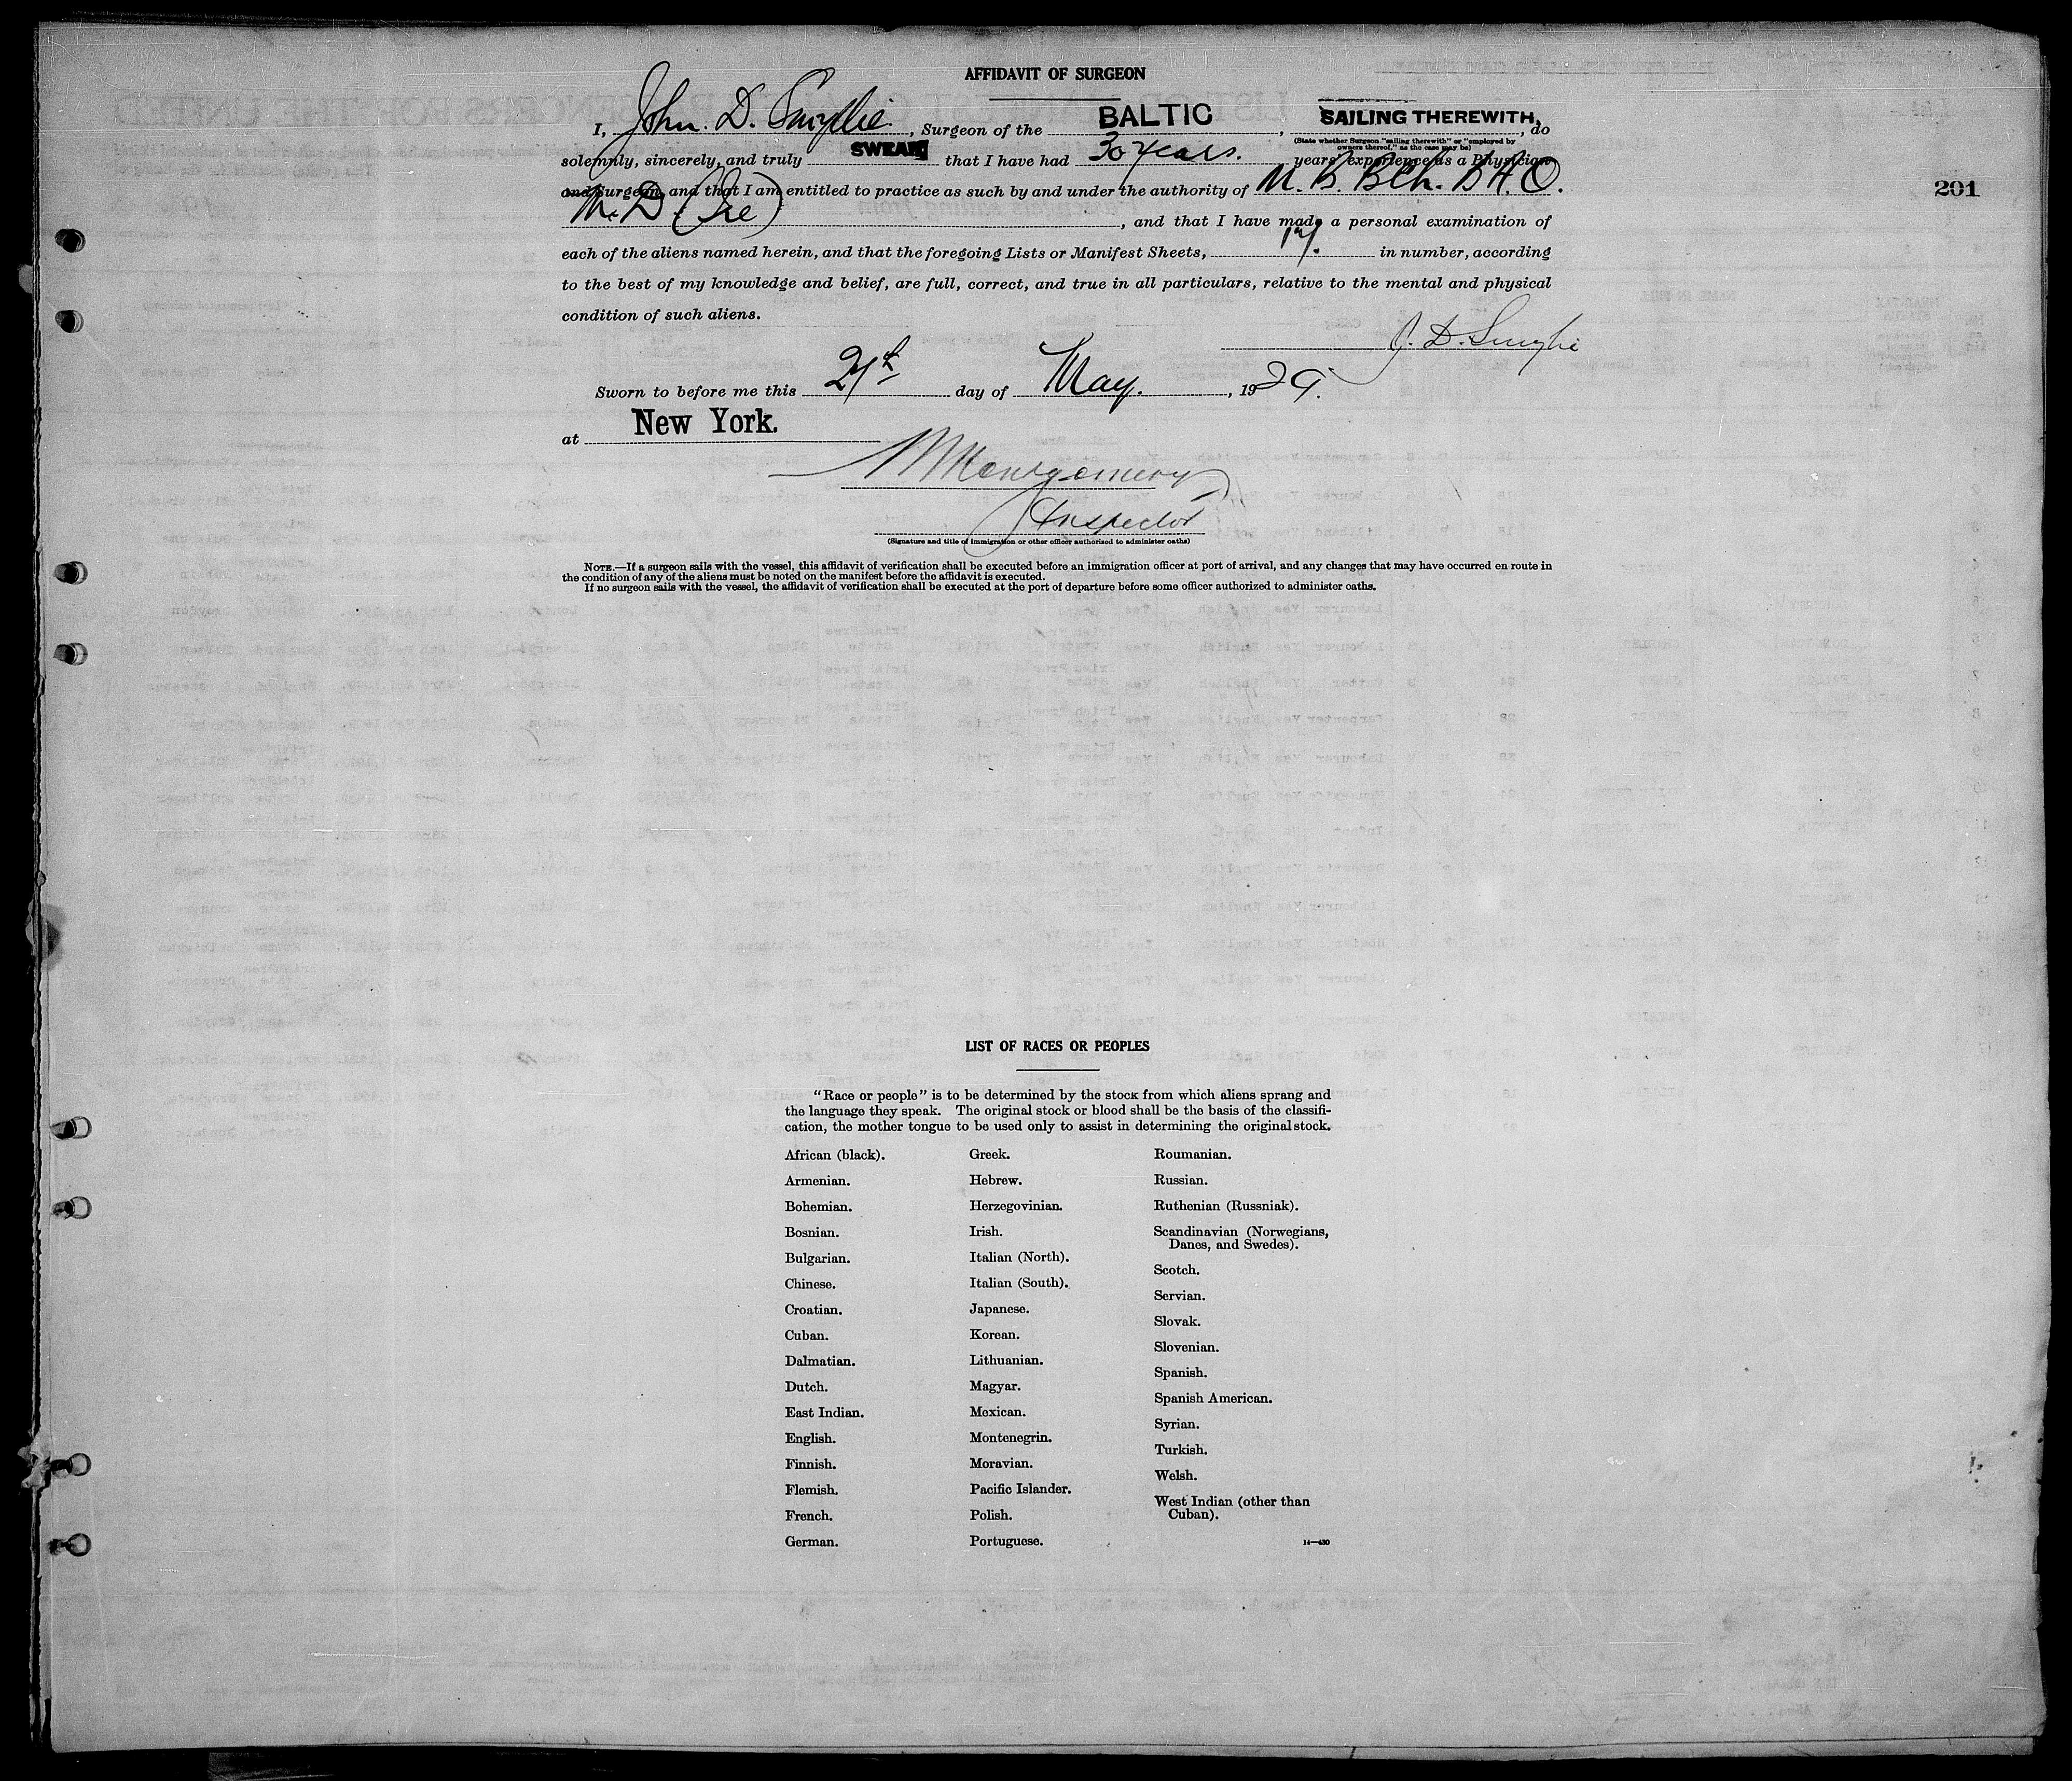 AFFIDAVIT OF SURGEON
I, John. D. Smyllie., Surgeon of the BALTIC, SAILING THEREWITH, do
(State whether Surgeon "sailing therewith" or "employed by
owners thereof," as the case may be)
solemnly, sincerely, and truly SWEAR that I have had 30 years. years' experience as a Physician
and Surgeon, and that I am entitled to practice as such by and under the authority of M. B. BCh. B A. O.
M. D. (Ire), and that I have made a personal examination of
each of the aliens named herein, and that the foregoing Lists or Manifest Sheets, in number, according
to the best of my knowledge and belief, are full, correct, and true in all particulars, relative to the mental and physical
condition of such aliens.
J. D.
Sworn to before me this 21st day of May., 1929.
at New York.
Montgomery
Inspector
(Signature and title of immigration or other officer authorized to administer oaths)
NOTE.—If a surgeon sails with the vessel, this affidavit of verification shall be executed before an immigration officer at port of arrival, and any changes that may have occurred en route in
the condition of any of the aliens must be noted on the manifest before the affidavit is executed.
If no surgeon sails with the vessel, the affidavit of verification shall be executed at the port of departure before some officer authorized to administer oaths.
201
LIST OF RACES OR PEOPLES
"Race or people" is to be determined by the stock from which aliens sprang and
the language they speak. The original stock or blood shall be the basis of the classifi-
cation, the mother tongue to be used only to assist in determining the original stock.
African (black).
Armenian.
Bohemian.
Bosnian.
Bulgarian.
Chinese.
Croatian.
Cuban.
Dalmatian.
Dutch.
East Indian.
English.
Finnish.
Flemish.
French.
German.
Greek.
Hebrew.
Herzegovinian.
Irish.
Italian (North).
Italian (South).
Japanese.
Korean.
Lithuanian.
Magyar.
Mexican.
Montenegrin.
Moravian.
Pacific Islander.
Polish.
Portuguese.
Roumanian.
Russian.
Ruthenian (Russniak).
Scandinavian (Norwegians,
Danes, and Swedes).
Scotch.
Servian.
Slovak.
Slovenian.
Spanish.
Spanish American.
Syrian.
Turkish.
Welsh.
West Indian (other than
Cuban).
14—430